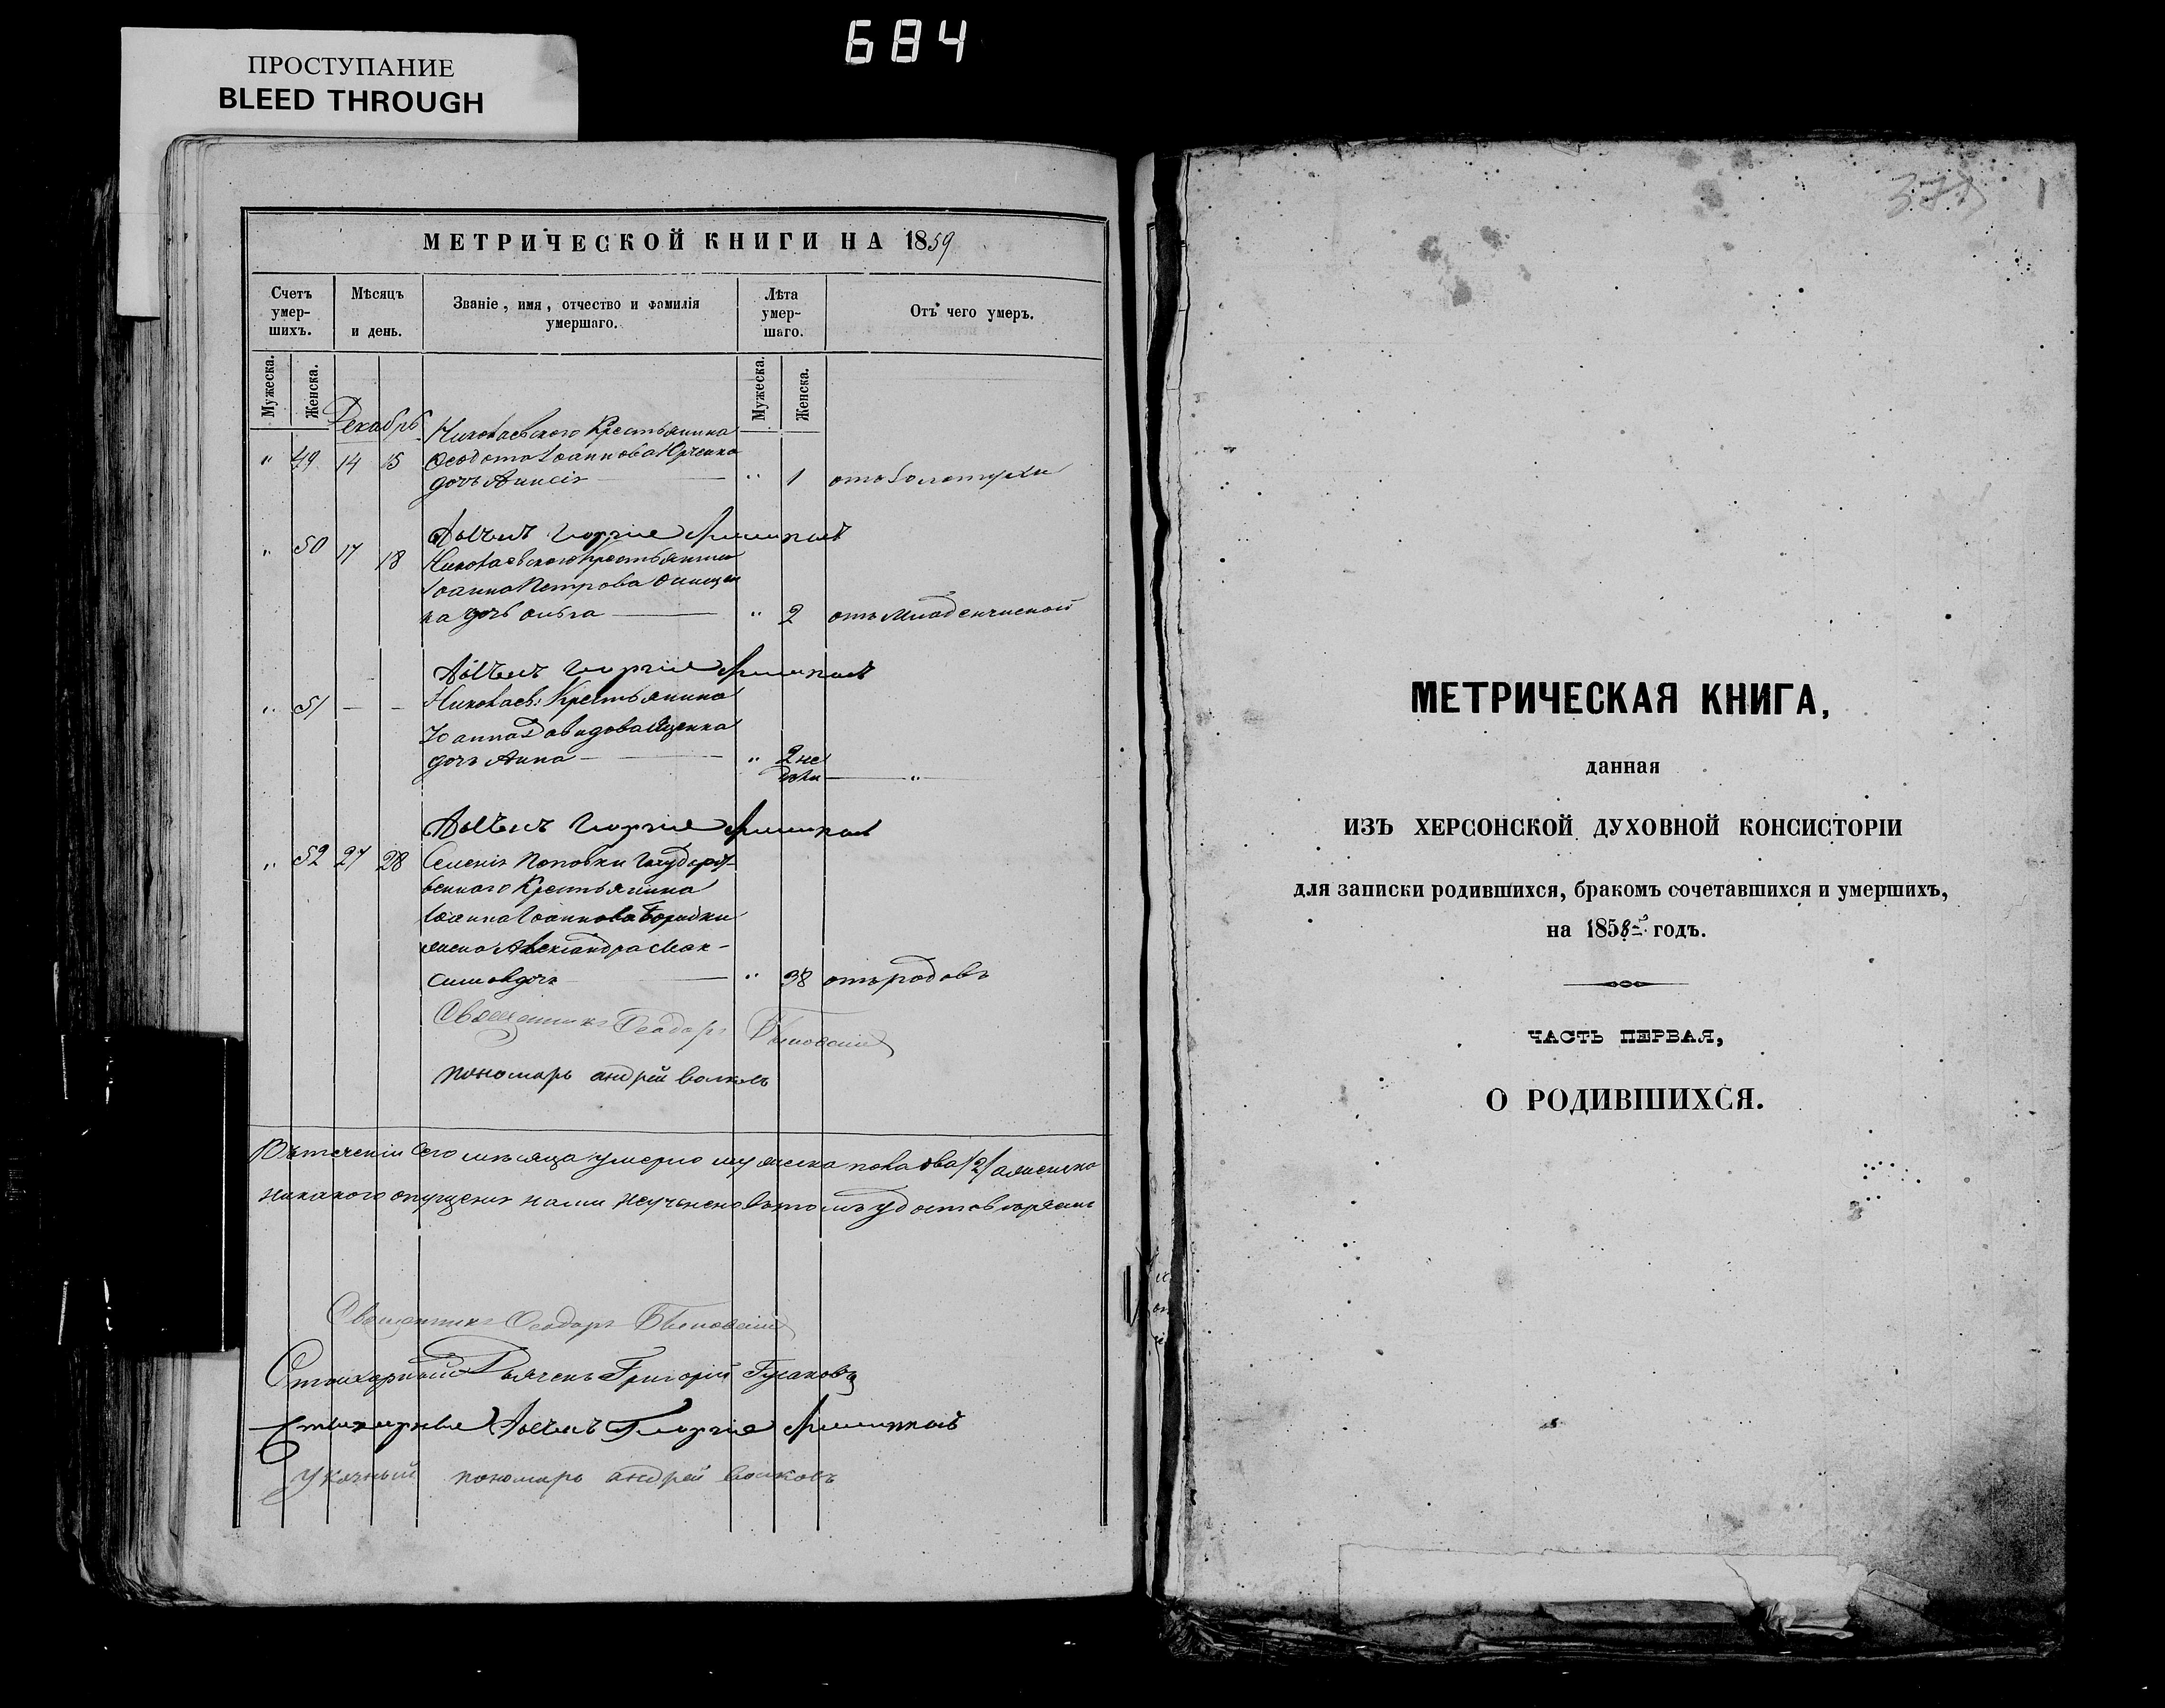 684
ПРОСТУПАНИЕ
BLEED THROUGH
МЕТРИЧЕСКОЙ КНИГИ НА 1859
Счетъ умер-шихъ.
Мѣсяцъ и день.
Званіе, имя, отчество и фамилія умершаго.
Лѣта умер-шаго.
Отъ чего умеръ.
Мужеска. Женска. Мужеска. Женска.
Декабрь
Николаевского Крестьянина
" 49 14 15 Ѳеодота Іоаннова Юрченка
дочь Анисія " 1 отъ Золотухи
" 50 17 18 Николаевского Крестьянина
Іоанна Петрова Онищен
ка дочь Ольга " 2 отъ Младенческой
" 51 — — Николаев: Крестьянина
Іоанна Давидова Яценка
дочь Анна " 2 не
дѣли "
" 52 27 28 Селенія Поповки Государст-
веннаго Крестьянина
Іоанна Іоаннова
жена Александра Мак-
симовa дочь " 38 отъ родовъ
Священникъ Ѳеодоръ
пономарь андрей волковъ
Въ теченіи сего мѣсяца умерло мужеска пола два /2/ а женска
никакого опущенія нами неучинено въ томъ удостовѣряемъ
Священникъ Ѳеодоръ
Стихарный Дьячекъ Григорій Гусаковъ
Стихарный
Указный пономарь андрей волковъ
1
МЕТРИЧЕСКАЯ КНИГА,
данная
ИЗЪ ХЕРСОНСКОЙ ДУХОВНОЙ КОНСИСТОРІИ
для записки родившихся, бракомъ сочетавшихся и умершихъ,
на 1858й годъ.
ЧАСТЬ ПЕРВАЯ,
О РОДИВШИХСЯ.